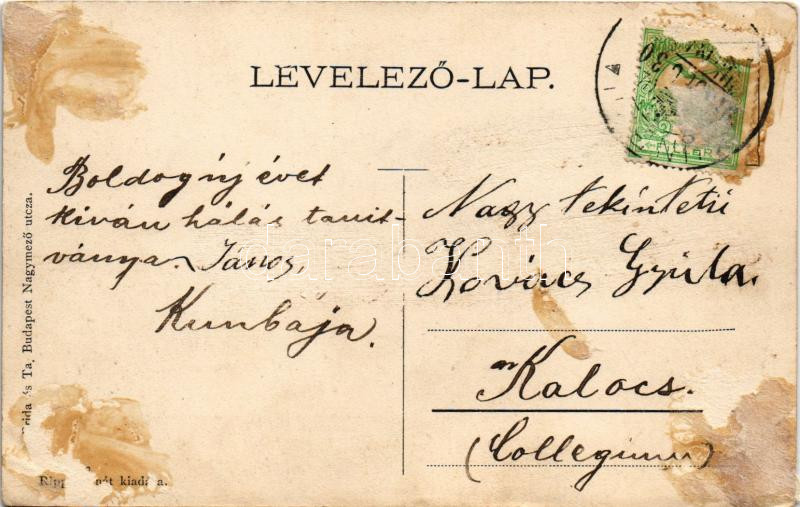 LEVELEZŐ-LAP.
Boldog új évet
kiván hálás tanit-
ványa János,
Kunbaja.
Nagy tekintetű
Kovács Gyula.
Kalocs.
(Collegium)
és Ta, Budapest Nagymező utcza.
kiadása.
darabanth